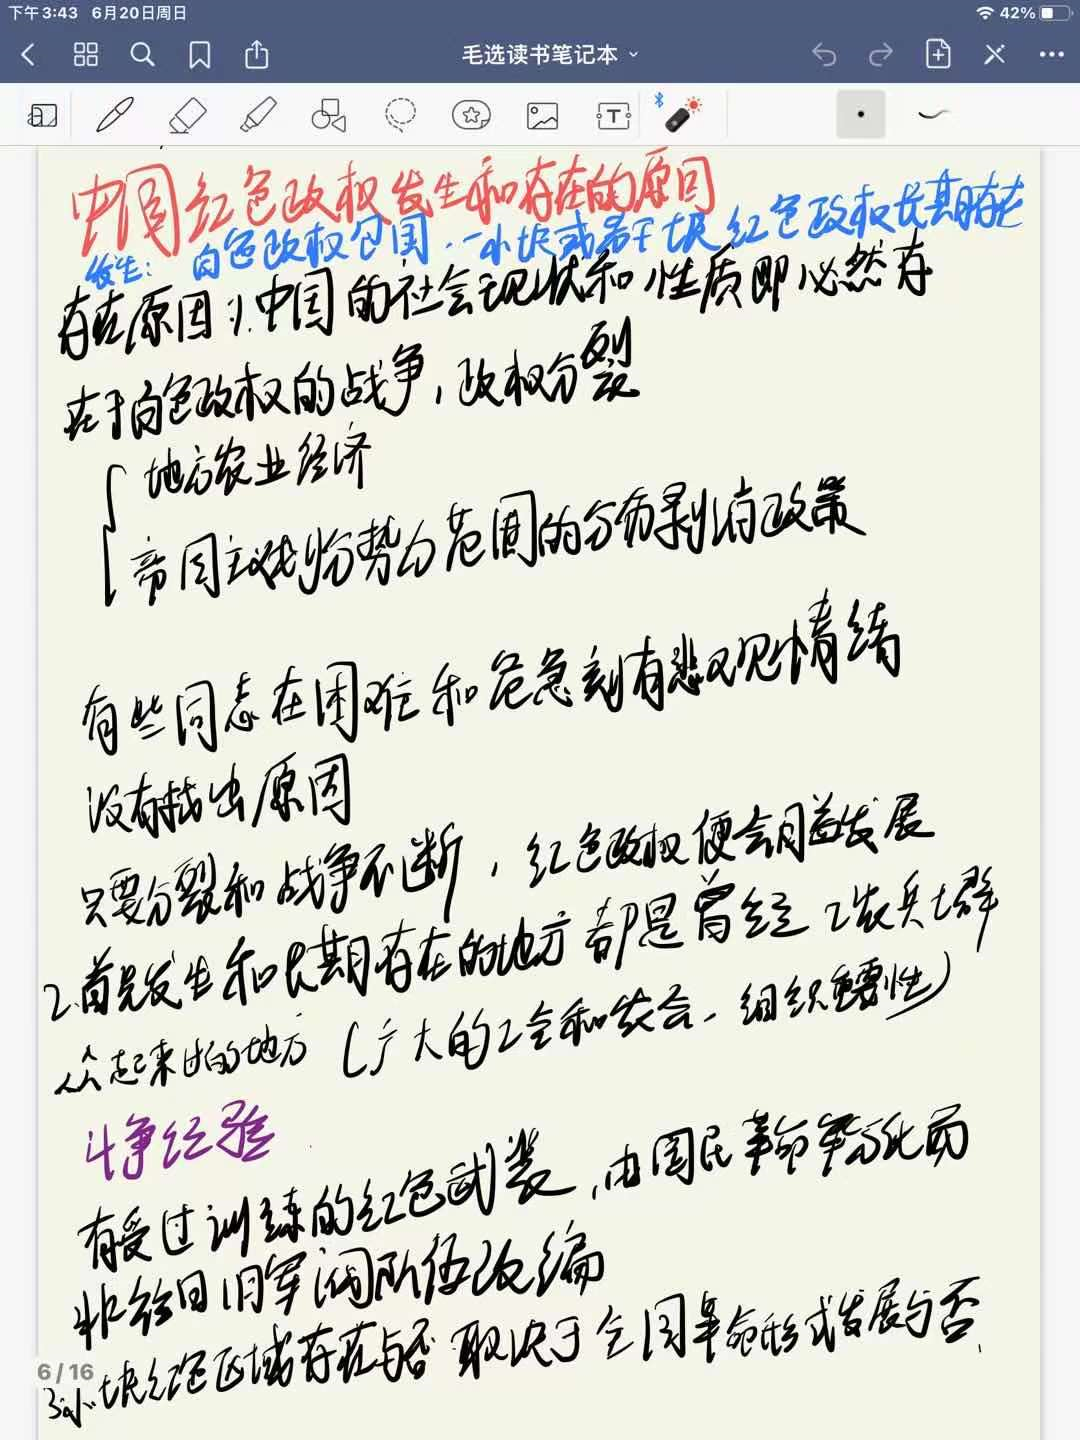 下午3:43 6月20日周日
42%
毛选读书笔记本
中国红色政权发生和存在的原因
发生：白色政权包围，一小块或若干块红色政权长期存在
存在原因 1.中国的社会现状和性质即必然存
在于白色政权的战争，政权分裂
地方农业经济
帝国主义划分势力范围的分布剥削政策
有些同志在困难和危急刻有悲观情绪
没有找出原因
只要分裂和战争不断，红色政权便会日益发展
2.首先发生和长期存在的地方都是曾经工农兵士群
众起来过的地方（广大的工会和农会、组织重要性）
斗争经验
有受过训练的红色武装，由国民革命军分化而
非给旧军阀队伍改编
3.小块红色区域存在与否取决于全国革命形式发展与否
6 / 16